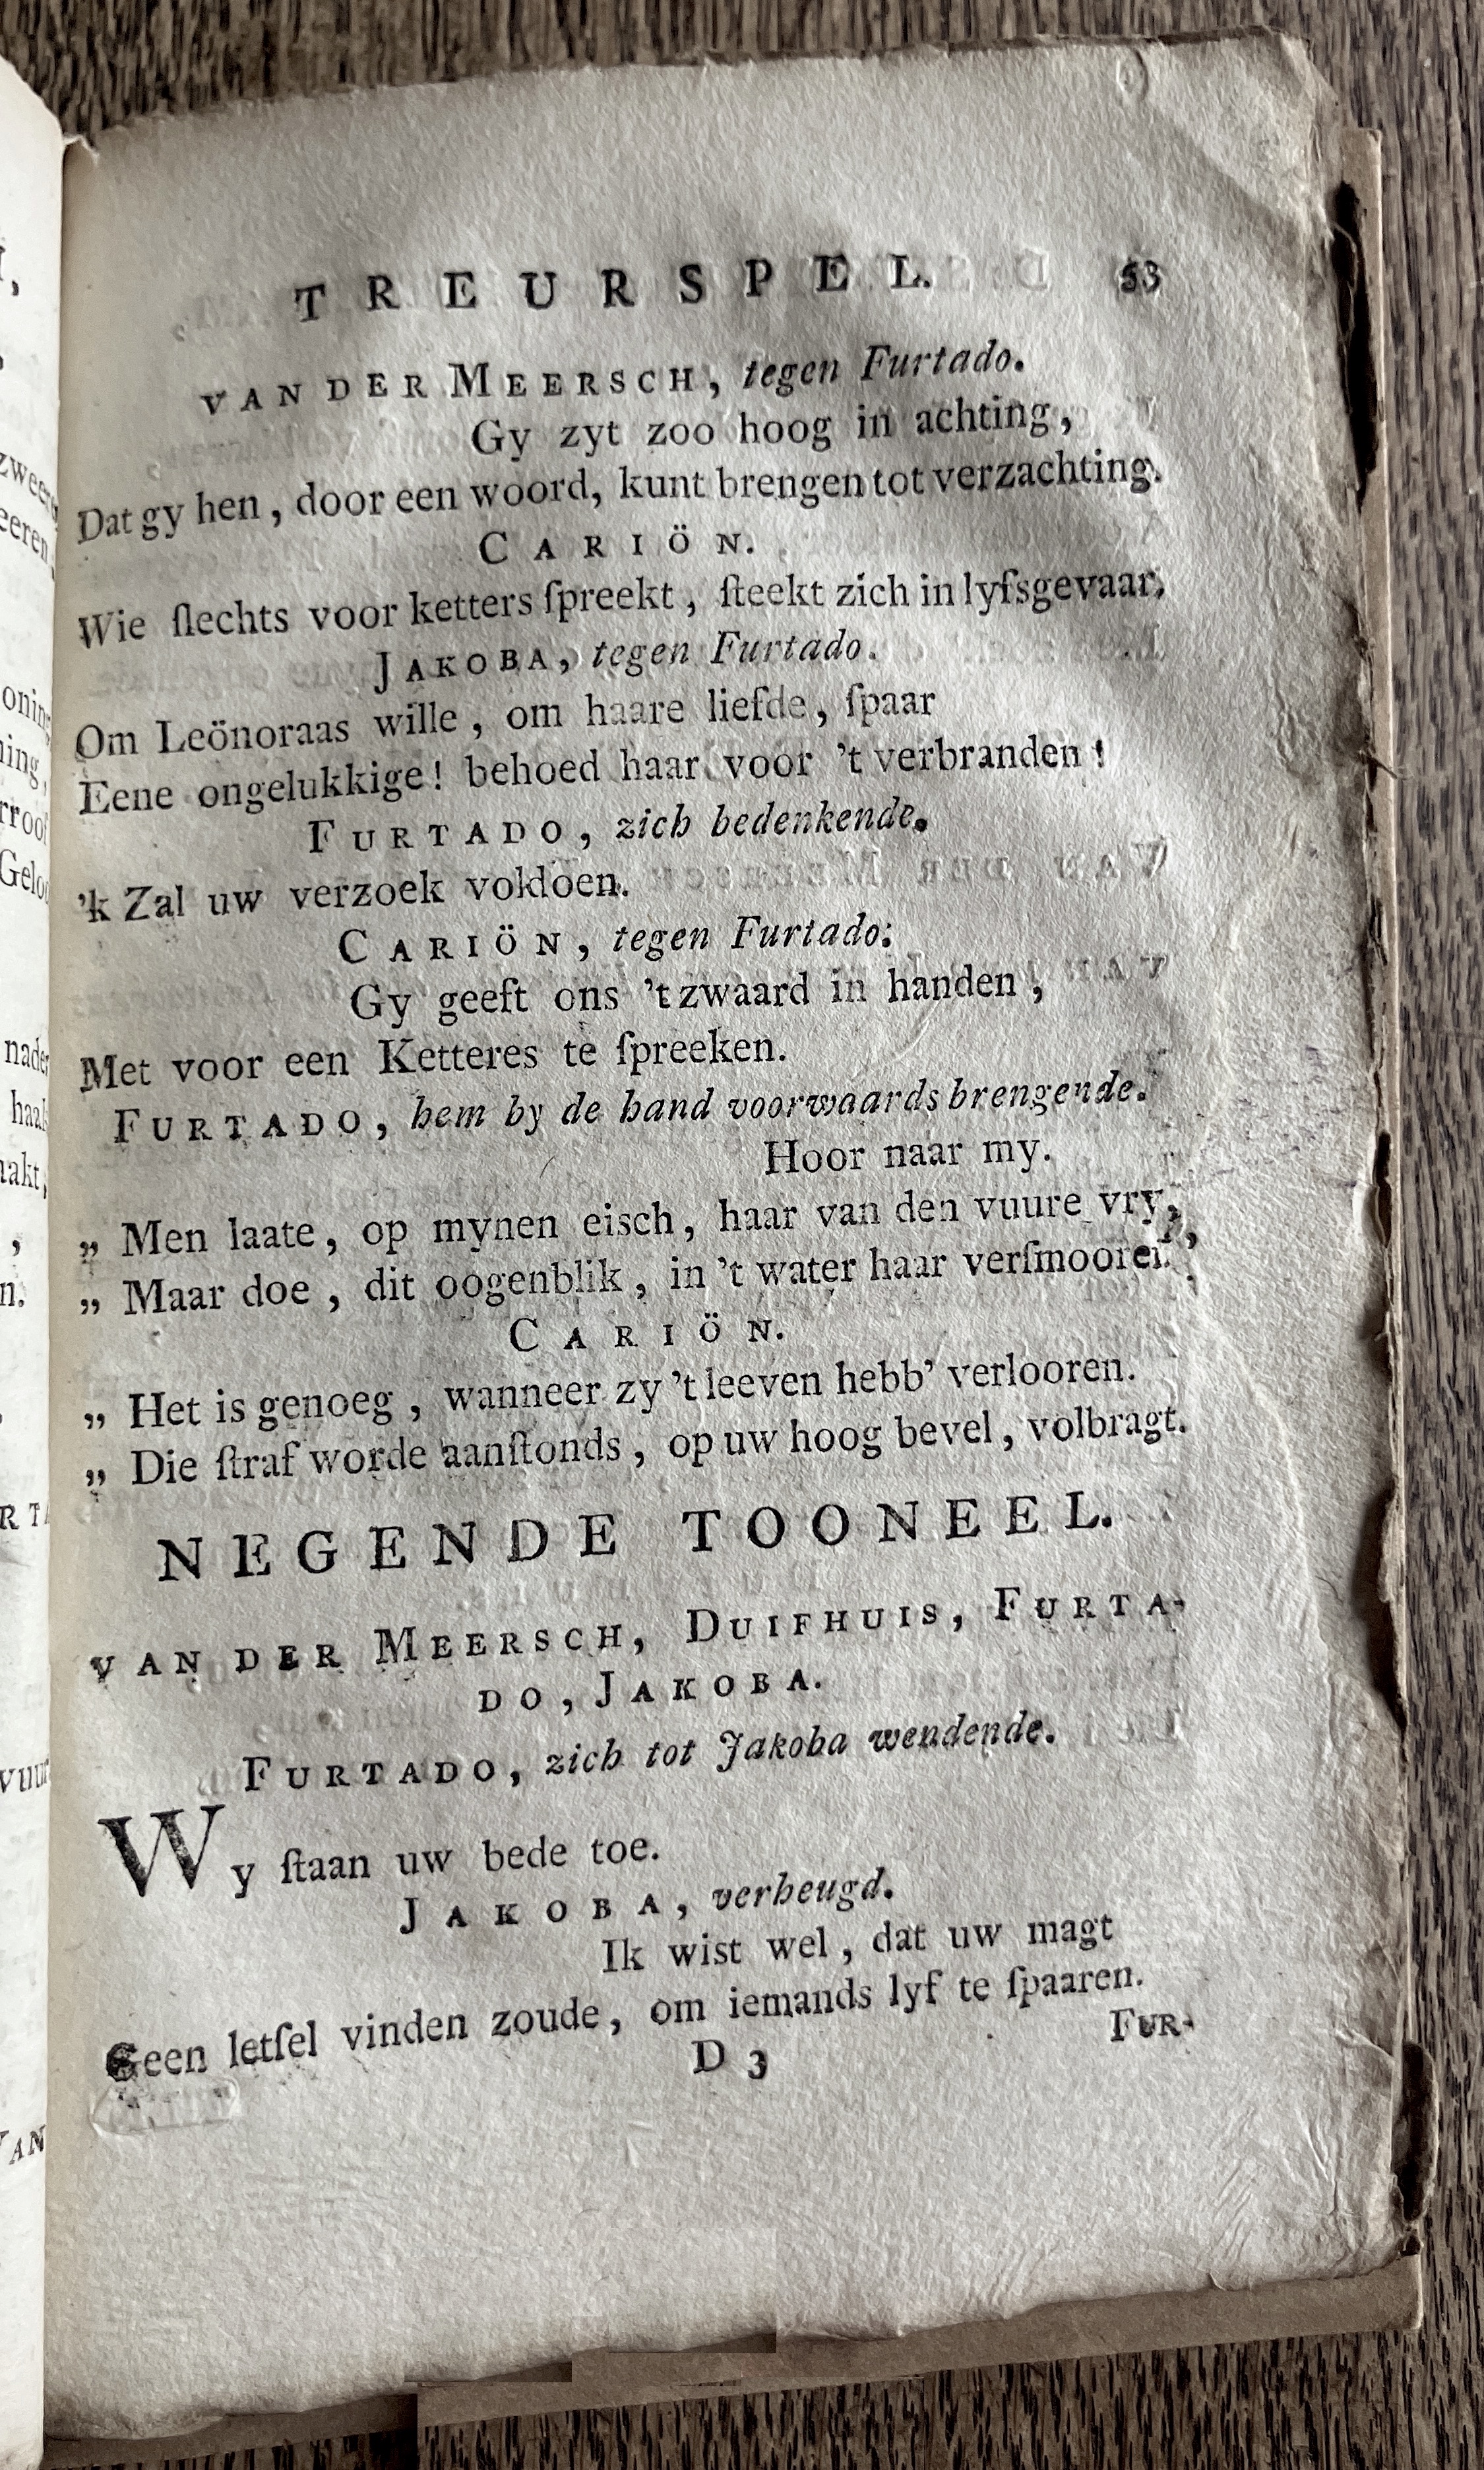 TREURSPEL. 53
VAN DER MEERSCH, tegen Furtado.
Gy zyt zoo hoog in achting,
Dat gy hen, door een woord, kunt brengen tot verzachting.
CARIÖN.
Wie ſlechts voor ketters ſpreekt, ſteekt zich in lyfsgevaar.
JAKOBA, tegen Furtado.
Om Leönoraas wille, om haare liefde, ſpaar
Eene ongelukkige! behoed haar voor 't verbranden!
FURTADO, zich bedenkende.
'k Zal uw verzoek voldoen.
CARIÖN, tegen Furtado.
Gy geeft ons 't zwaard in handen,
Met voor een Ketteres te ſpreeken.
FURTADO, hem by de hand voorwaards brengende.
Hoor naar my.
„ Men laate, op mynen eisch, haar van den vuure vry,
„ Maar doe, dit oogenblik, in 't water haar verſmooren,
CARIÖN.
„ Het is genoeg, wanneer zy 't leeven hebb' verlooren.
„ Die ſtraf worde aanſtonds, op uw hoog bevel, volbragt.
NEGENDE TOONEEL.
VAN DER MEERSCH, DUIFHUIS, FURTA-
DO, JAKOBA.
FURTADO, zich tot Jakoba wendende.
Wy ſtaan uw bede toe.
JAKOBA, verheugd.
Ik wist wel, dat uw magt
Geen letſel vinden zoude, om iemands lyf te ſpaaren.
D 3 FUR-